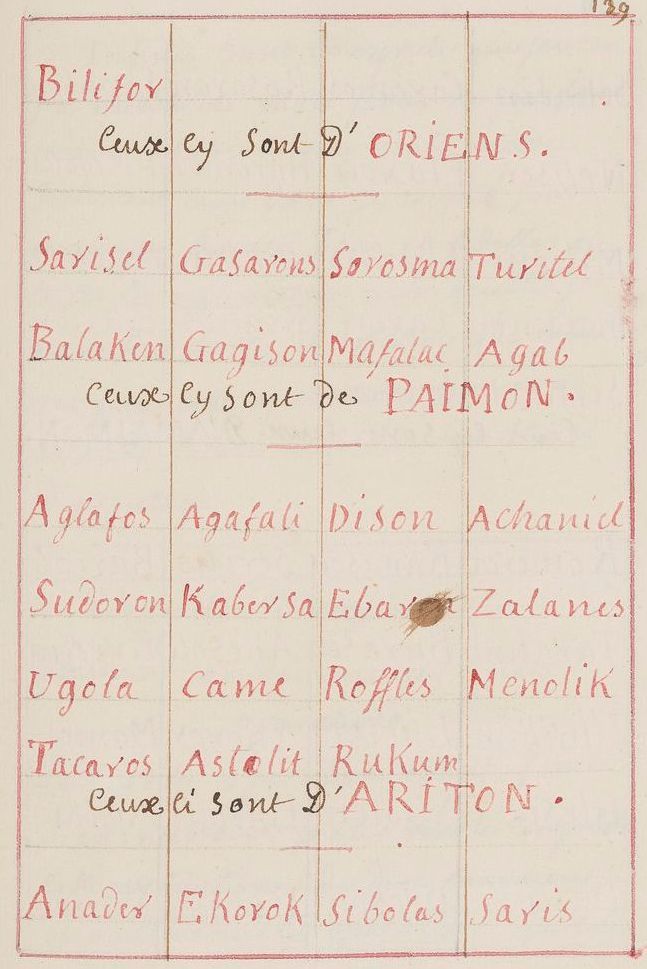 139
Bilifor
Ceux cy sont D'ORIENS.
Sarisel Gasarons Sorosma Turitel
Balaken Gagison Mafalac Agab
Ceux cy sont de PAIMON.
Aglafos Agafali Dison Achaniel
Sudoron Kabersa Zalanes
Ugola Came Roffles Menolik
Tacaros Astolit Rukum
Ceux ci sont D'ARITON.
Anader Ekorok Sibolas Saris